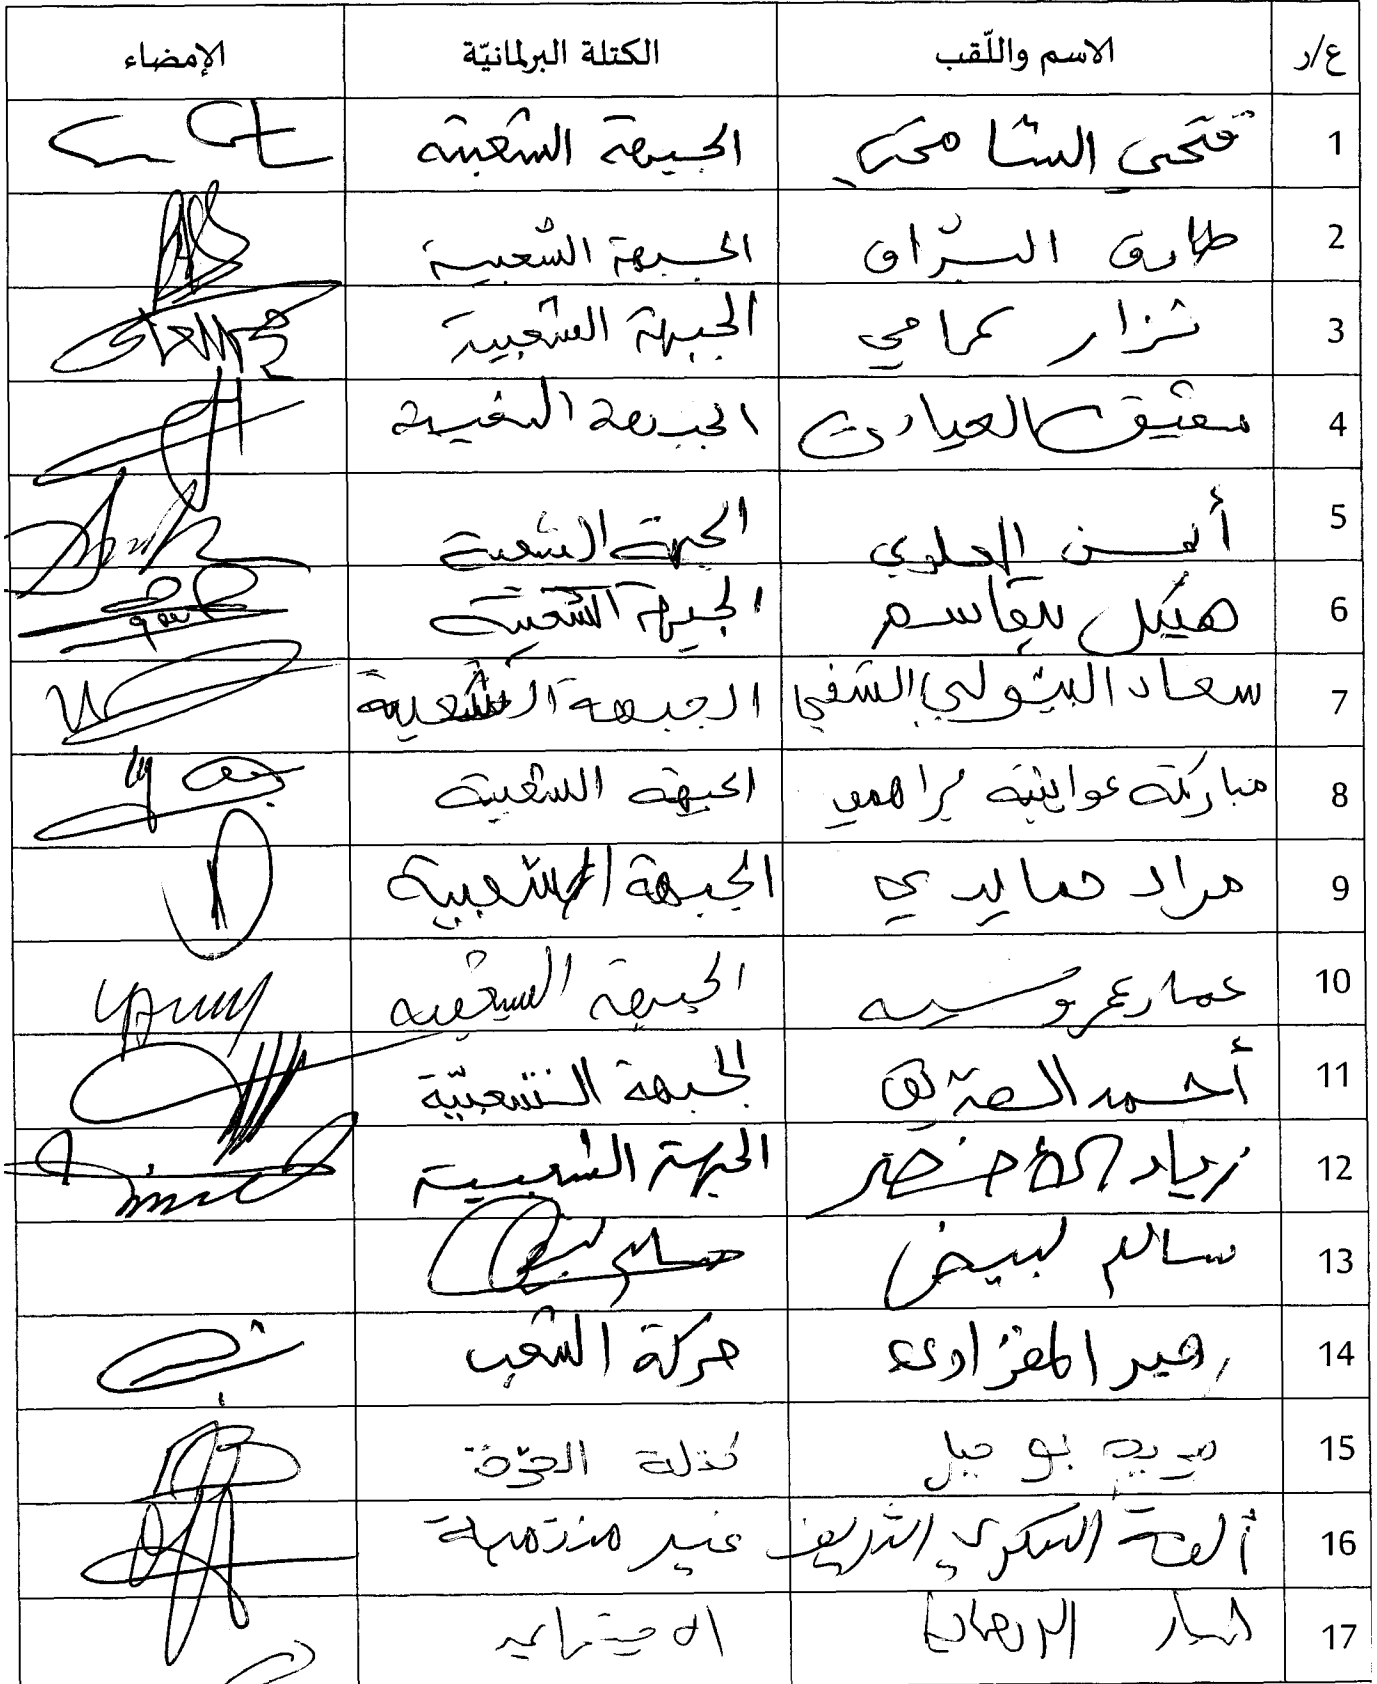 ع/ر الاسم واللّقب الكتلة البرلمانيّة الإمضاء
1 فتحي الشامخي الجبهة الشعبية
2 طارق البرّاق الجبهة الشعبية
3 نزار عمامي الجبهة الشعبية
4 شفيق العيادي الجبهة الشعبية
5 أيمن العلوي الجبهة الشعبية
6 هيكل بلقاسم الجبهة الشعبية
7 سعاد البيّولي الشفي الجبهة الشعبية
8 مباركة عواينية براهمي الجبهة الشعبية
9 مراد حمايدي الجبهة الشعبية
10 عمار عمروسية الجبهة الشعبية
11 أحمد الصدّيق الجبهة الشعبيّة
12 زياد الأخضر الجبهة الشعبية
13 سالم لبيض
14 زهير المغزاوي حركة الشعب
15 مريم بوجبل كتلة الحرّة
16 ألفة السكري الشريف غير منتمية
17